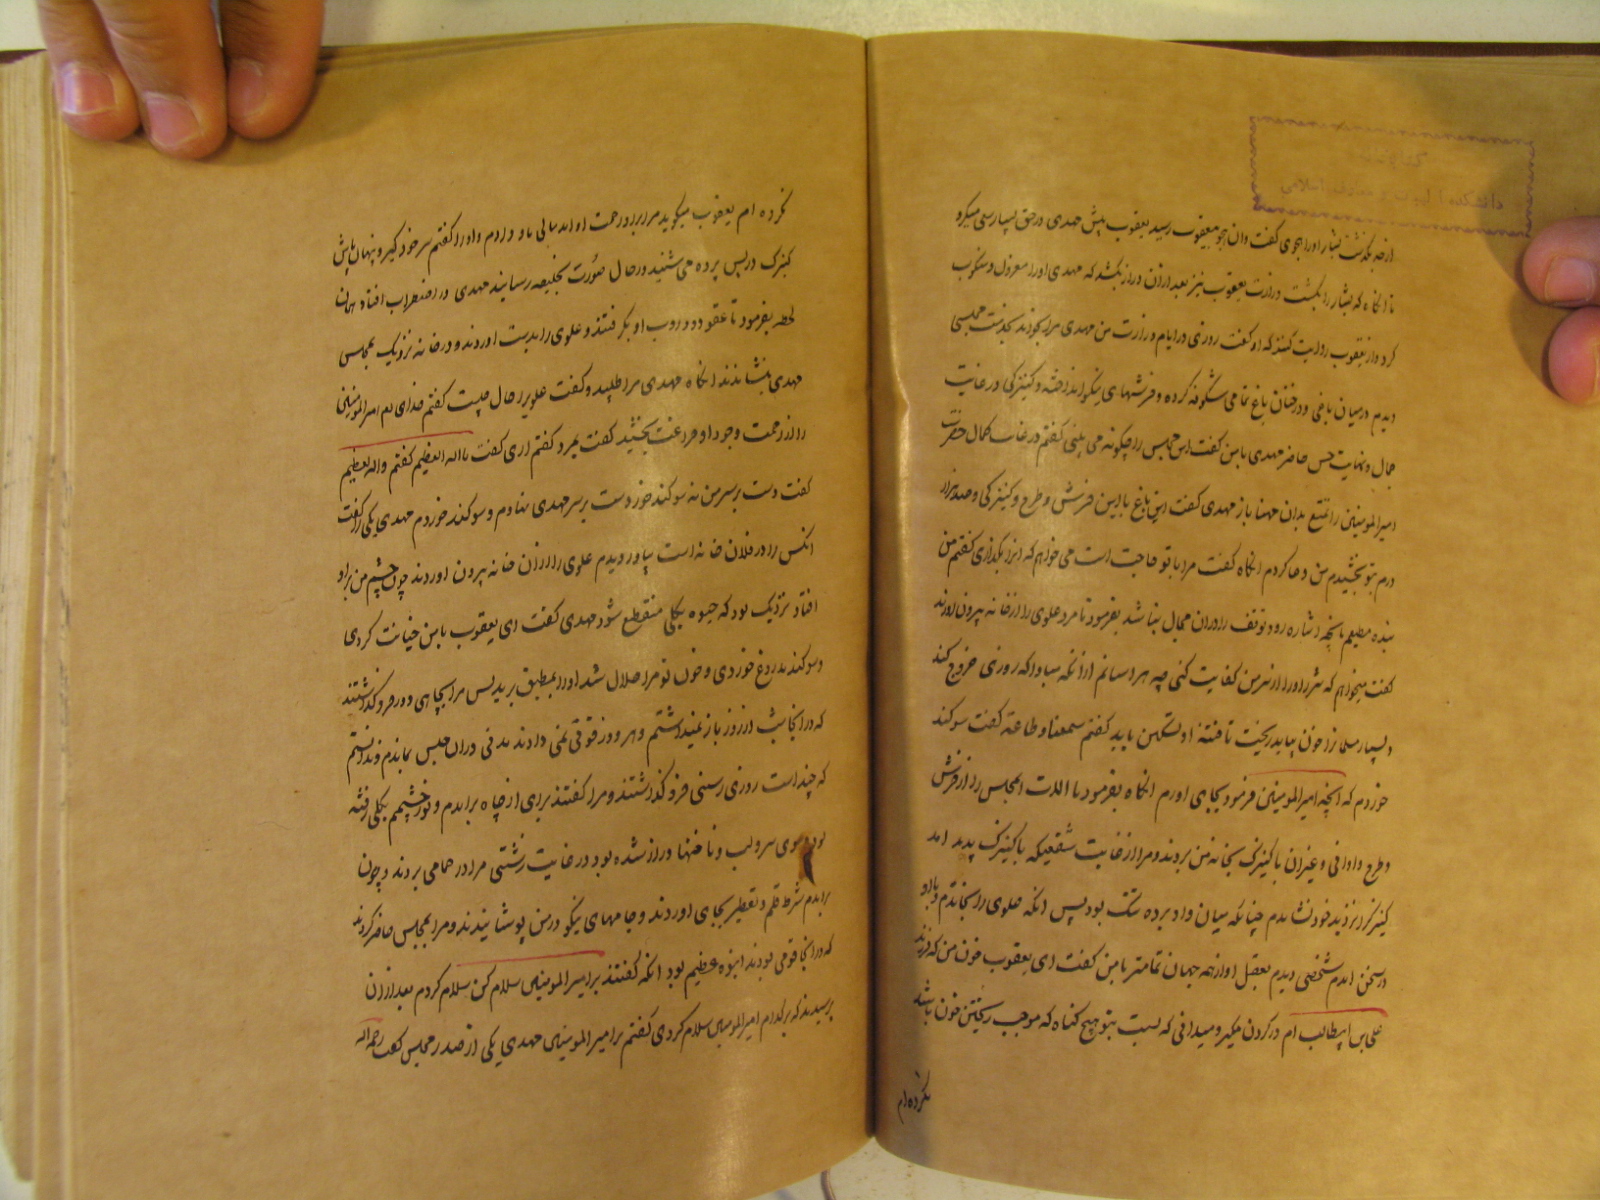 از حد بگذشت بشار او را هجوی گفت و ان هجو بیعقوب رسید یعقوب پیش مهدی در حق بشار سعی میکرد
تا انکاه که بشار را بکشت و وزارت یعقوب نیز بعد از ان دراز نکشید که مهدی او را معزول و منکوب
کرد و از یعقوب روایت کنند که او گفت روزی در ایام وزارت من مهدی مرا بخواند بخدمت مجلسی
دیدم در میان باغی و درختان باغ تمامی شکوفه کرده و فرشهای نیکو انداخته و کنیزکی در غایت
جمال و نهایت حسن حاضر مهدی با من گفت این مجلس را چگونه می بینی گفتم در غایت کمال حضرت
امیرالمومنین را تمتع بدان مهنا باز مهدی گفت این باغ با این فرش و طرح و کنیزکی و صد هزار
درم بتو بخشیدم من دعا کردم انکاه گفت مرا با تو حاجت است می خواهم که انرا بگذاری گفتم من
بنده مطیعم بانچه اشاره رود توقف را در ان مجال نباشد بفرمود تا مرد علوی را از خانه بیرون اوردند
گفت میخواهم که شر او را از سر من کفایت کنی چه هراسانم از انکه مبادا که روزی خروج کند
و بسیار مسلمانرا خون بباید ریخت تا فتنه او تسکین یابد گفتم سمعنا و طاعة گفت سوکند
خوردم که انچه امیرالمومنین فرمود بجای اورم انکاه بفرمود تا الات المجلس را از فرش
و طرح و اوانی و غیر ان با کنیزک بخانه من بردند و مرا از غایت شعفیکه با کنیزک پدید امد
کنیزک را نزدیک خود نشاندم چنانکه میان و او پرده تنک بود پس انکه علوی را بخواندم و با او
در سخن امدم شخصی دیدم بعقل او از همه جهان تمامتر با من گفت ای یعقوب خون من که فرزند
علی بن ابیطالب ام در کردن میگیر و میدانی که نسبت بتو هیچ کناه که موجب ریختن خون باشد
نکرده ام
نکرده ام یعقوب میگوید مرا برو رحمت امد مالی باو دادم و او را گفتم سر خود گیر و پنهان باش
کنیزک در پس پرده می شنید در حال صورت بخلیفه رسانید مهدی در اضطراب افتاد همان
لحظه بفرمود تا عقود و دروب او بگرفتند و علوی را بدست اوردند و در خانه نزدیک مجلس
مهدی بنشاندند انکاه مهدی مرا طلبید و گفت علویرا حال چیست گفتم خدای تع امیرالمومنین
را از زحمت وجود او فراغت بخشید گفت بمرد گفتم اری گفت بالله العظیم گفتم والله العظیم
گفت دست بر سر من نه سوکند خور دست بر سر مهدی نهادم و سوکند خوردم مهدی یکی را گفت
انکس را در فلان خانه است بیاور دیدم علوی را از ان خانه بیرون اوردند چون چشم من برو
افتاد نزدیک بود که حیوه بکلی منقطع شود مهدی گفت ای یعقوب با من خیانت کردی
و سوکند بدروغ خوردی و خون تو مرا حلال شد او را بمطبق برید پس مرا بچاهی دور فرو گذاشتند
که در انجا شب از روز باز نمیدانستم و هر روز قوتی بمن دادند مدتی در ان حبس بماندم و ندانستم
که چند است روزی رسنی فرو گذاشتند و مرا گفتند برای از چاه برامدم و نور چشمم بکلی رفته
بود و موی سر و لب و ناخنها دراز شده بود در غایت زشتی مرا در حمامی بردند و چون
برامدم شرط قلم و تقطیر بجای اوردند و جامهای نیکو در من پوشانیدند و مرا بمجلس حاضر کردند
که در انجا قومی بودند انبوه عظیم بود انکه گفتند بر امیرالمومنین سلام کن سلام کردم بعد از ان
پرسیدند که بر کدام امیرالمومنین سلام کردی گفتم بر امیرالمومنین مهدی یکی از صدر مجلس گفت رحمه الله